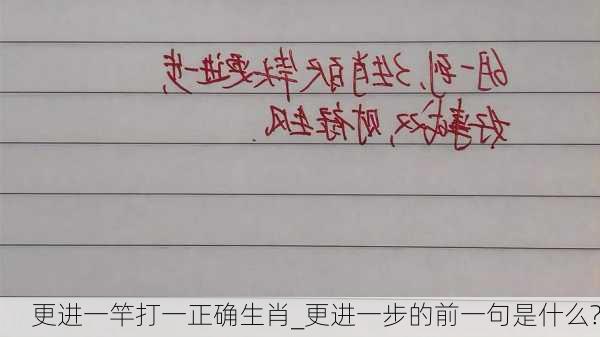 6月一到,3生肖百尺竿头更进一步,
好事成双,财禄生风.
更进一竿打一正确生肖_更进一步的前一句是什么?